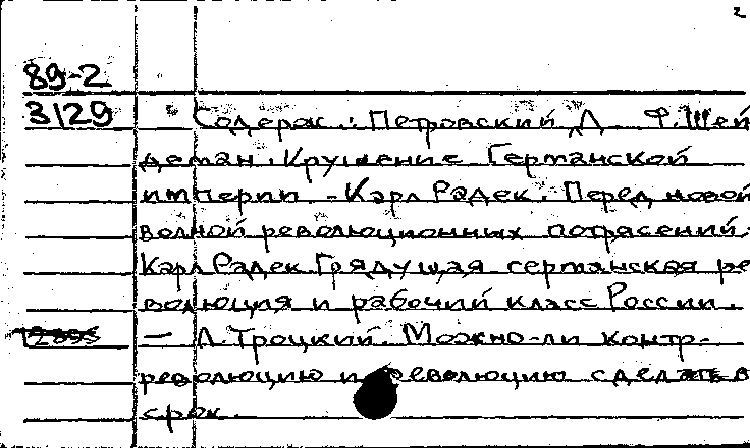 2
89-2
3129
Содерж.: Петровский Д. Ф. Шей
деман. Крушение Германской
империи. - Карл Радек. Перед новой
волной революционных потрясений.
Карл Радек. Грядущая германская ре
волюция и рабочий класс России.
— Л. Троцкий. Можно-ли контр-
революцию и революцию сделать в
срок.